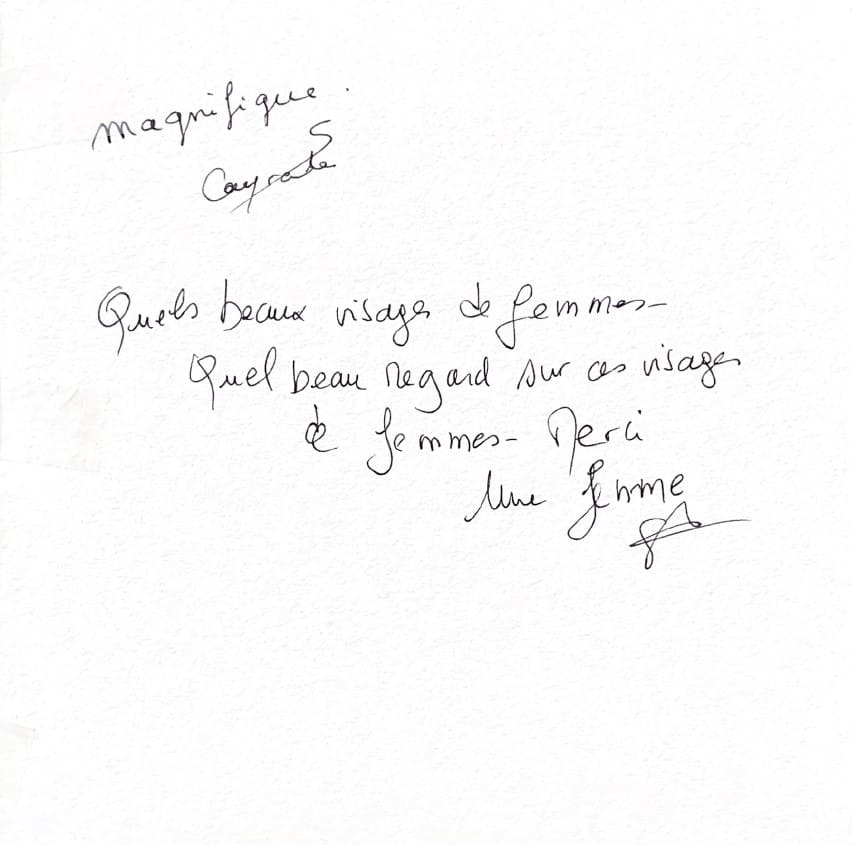 magnifique.
Quels beaux visages de femmes-
Quel beau regard sur ces visages
de femmes- Merci
Une femme